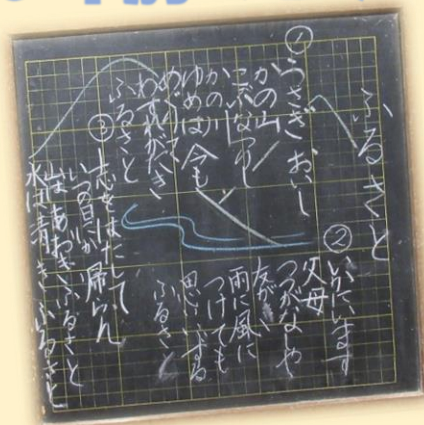 ふるさと
①
うさぎ おいし
かの山
こぶなつりし
かの川
ゆめは 今も
めぐりて
わすれがたき
ふるさと
②
いかにいます
父母
つつがなしや
友がき
雨に風に
つけても
思いいずる
ふるさと
③
志をはたして
いつの日にか帰らん
山はあおきふるさと
水は清きふるさと